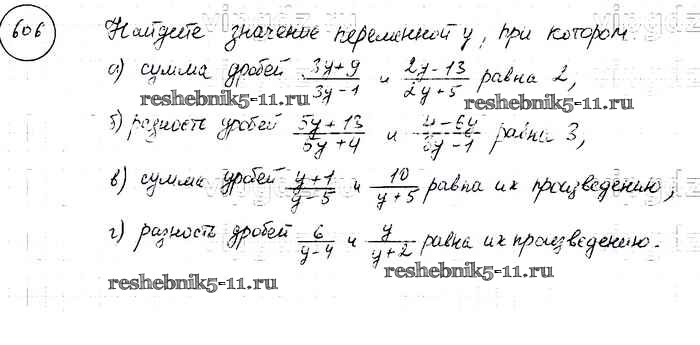 606 Найдите значение переменной y, при котором:
а) сумма дробей (3y+9)/(3y-1) и (2y-13)/(2y+5) равна 2;
reshebnik5-11.ru reshebnik5-11.ru
б) разность дробей (5y+13)/(5y+4) и (4-6y)/(3y-1) равна 3;
в) сумма дробей (y+1)/(y-5) и 10/(y+5) равна их произведению;
г) разность дробей 6/(y-4) и y/(y+2) равна их произведению.
reshebnik5-11.ru reshebnik5-11.ru